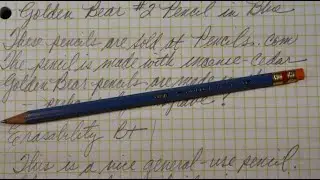 Golden Bear #2 Pencil in Blue
These pencils are sold at Pencils.com
The pencil is made with incense-cedar
Golden Bear pencils are made
Erasability B+
This is a nice general-use pencil.